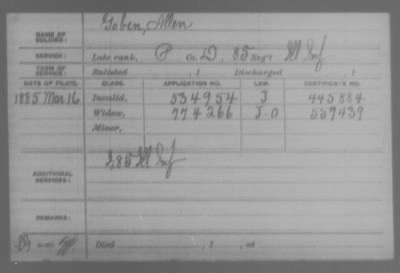 Goben, Allen
NAME OF SOLDIER:
SERVICE: Late rank, P Co. D, 85 Reg't Ill Inf
TERM OF SERVICE: Enlisted , 1 Discharged , 1
DATE OF FILING. CLASS. APPLICATION NO. LAW. CERTIFICATE NO.
1885 Mar 16 Invalid, 534954 J 445884
Widow, 774266 J-O 559439
Minor,
ADDITIONAL SERVICES: 85 Ill Inf
REMARKS:
Died , 1 , at